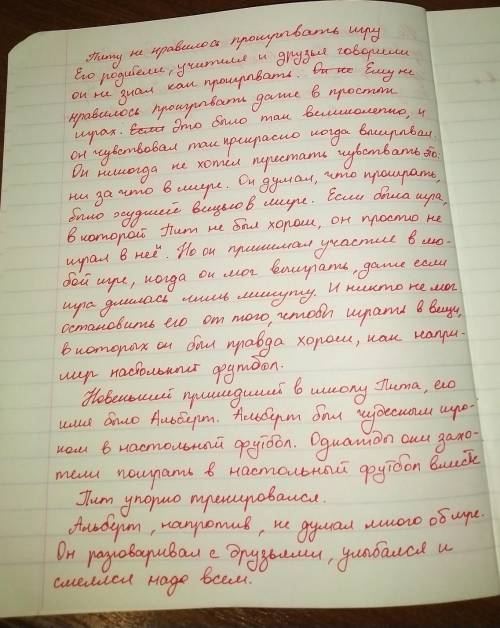 Питу не нравилось проигрывать игру
Его родители, учителя и друзья говорили
он не знал как проигрывать. Он не Ему не
нравилось проигрывать даже в простых
играх. Если Это было так великолепно, и
он чувствовал так прекрасно когда выигрывал.
Он никогда не хотел перестать чувствовать это.
ни за что в мире. Он думал, что проиграть,
было худшей вещью в мире. Если была игра,
в которой Пит не был хорош, он просто не
играл в неё. Но он принимал участие в лю-
бой игре, когда он мог выиграть, даже если
игра длилась лишь минуту. И никто не мог
остановить его от того, чтобы играть в вещи,
в которых он был правда хорош, как напри-
мер настольный футбол.
Новенький пришедший в школу Пита, его
имя было Альберт. Альберт был чудесным игро-
ком в настольный футбол. Однажды они захо-
тели поиграть в настольный футбол вместе
Пит упорно тренировался.
Альберт, напротив, не думал много об игре.
Он разговаривал с друзьями, улыбался и
смеялся надо всем.